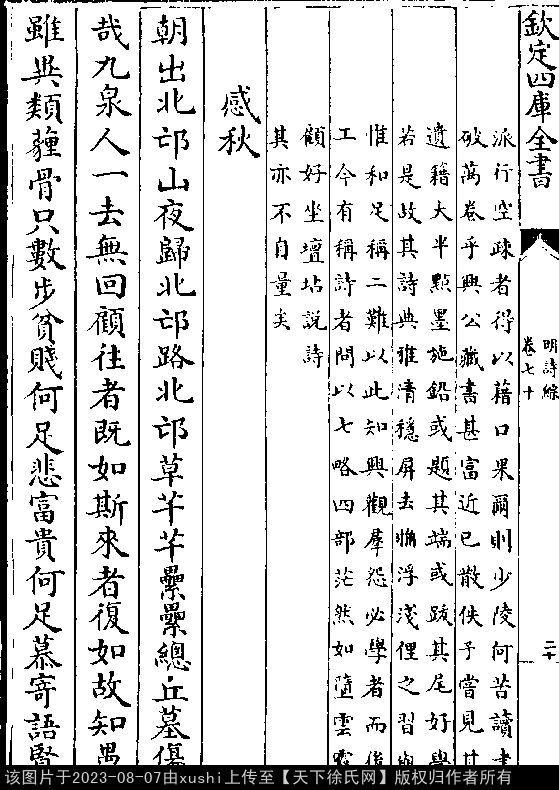 欽定四庫全書
明詩綜
卷七十
二十
派行空疎者得以藉口果爾則少陵何苦讀書
破萬卷乎興公藏書甚富近已散佚予嘗見其
遺籍大半點墨施鉛或題其端或跋其尾好學
若是故其詩典雅清穩屏去觕浮淺俚之習與
惟和足稱二難以此知興觀羣怨必學者而後
工今有稱詩者問以七略四部茫然如墮雲霧
顧好坐壇坫說詩
其亦不自量矣
感秋
朝出北邙山夜歸北邙路北邙草芊芊纍纍總丘墓傷
哉九泉人一去無回顧往者既如斯來者復如故知愚
雖異類薶骨只數步貧賤何足悲富貴何足慕寄語賢
该图片于2023-08-07由xushi上传至【天下徐氏网】版权归作者所有